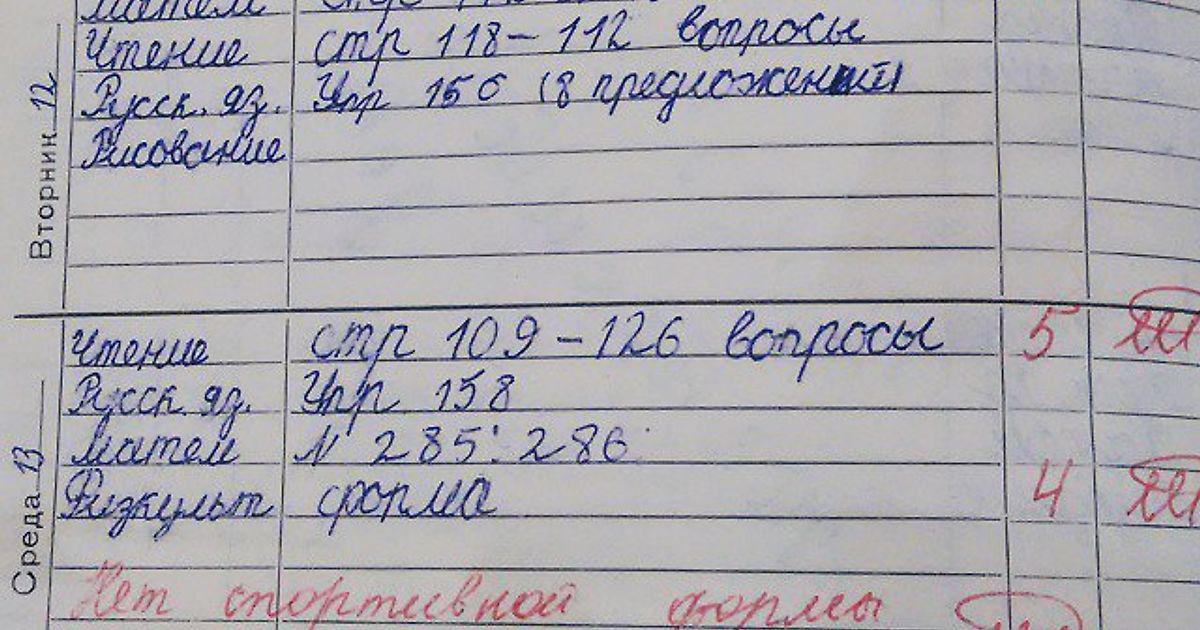 Матем
Вторник 12
Чтение стр 118-112 вопросы
Русск. яз. Упр 156 (8 предложений)
Рисование
Среда 13
Чтение стр 109-126 вопросы 5
Русск. яз. Упр 158
Матем N 285; 286
Физкульт форма 4
Нет спортивной формы